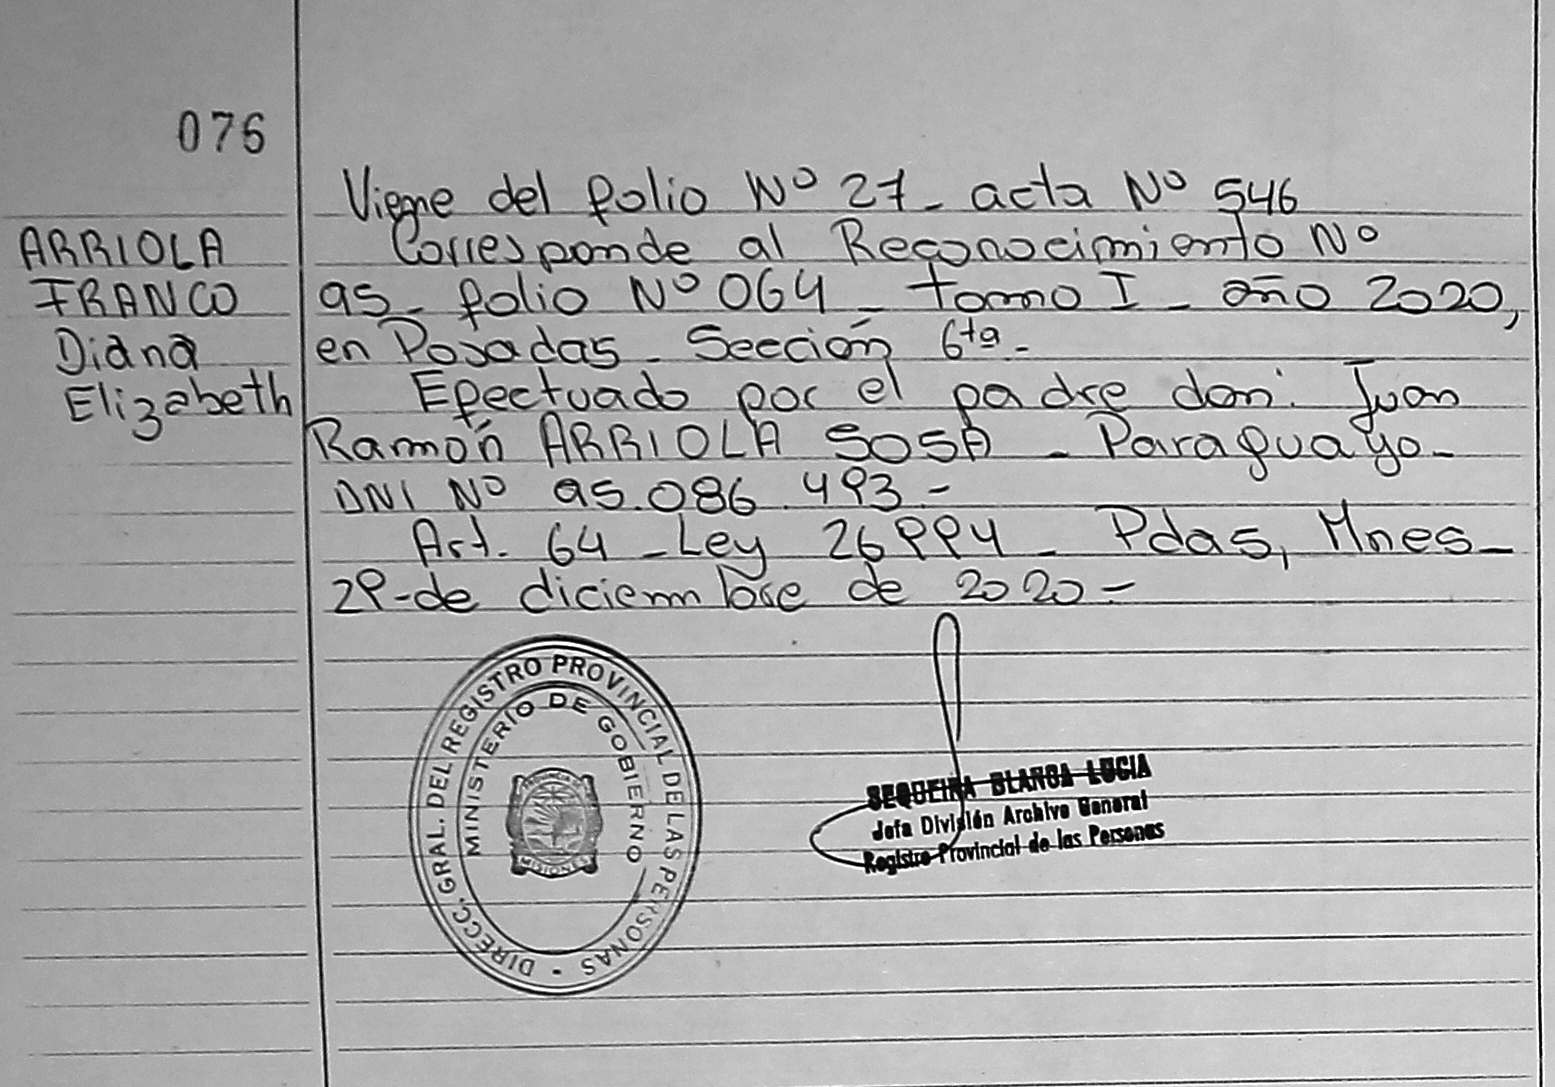 076
Viene del folio Nº 27_ acta Nº 546
ARRIOLA
FRANCO
Diana
Elizabeth
Corresponde al Reconocimiento Nº
95_ folio Nº 064_ tomo I_ año 2020,
en Posadas_ Sección 6ta_
Efectuado por el padre don: Juan
Ramón ARRIOLA SOSA_ Paraguayo_
DNI Nº 95.086.493_
Art. 64_Ley 26994_ Pdas, Mnes_
29-de diciembre de 2020_
DIRECC. GRAL. DEL REGISTRO PROVINCIAL DE LAS PERSONAS
MINISTERIO DE GOBIERNO
MISIONES
SEQUEIRA BLANCA LUCIA
Jefa División Archivo General
Registro Provincial de las Personas